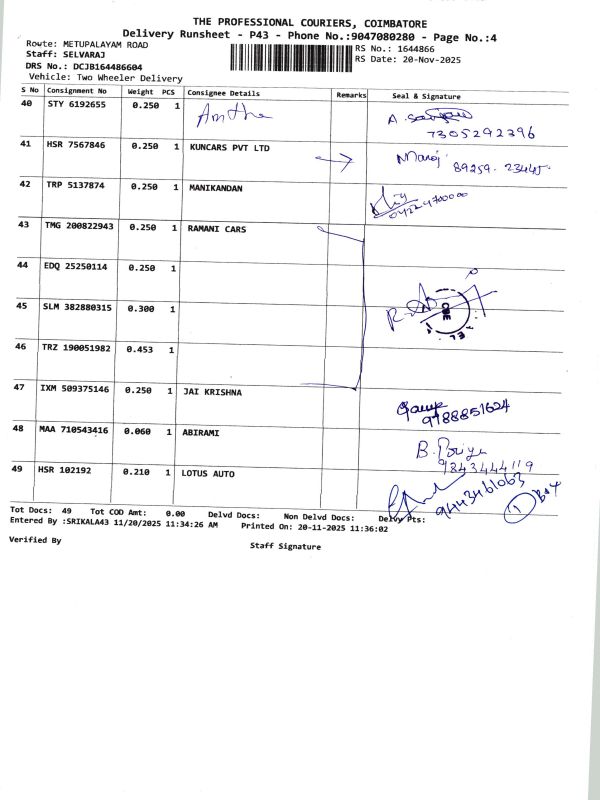 THE PROFESSIONAL COURIERS, COIMBATORE
Delivery Runsheet - P43 - Phone No.:9047080280 - Page No.:4
Route: METUPALAYAM ROAD
RS No.: 1644866
Staff: SELVARAJ
RS Date: 20-Nov-2025
DRS No.: DCJB164486604
Vehicle: Two Wheeler Delivery
S No Consignment No Weight PCS Consignee Details Remarks Seal & Signature
40 STY 6192655 0.250 1 A.
7305292396
41 HSR 7567846 0.250 1 KUNCARS PVT LTD Manoj
89259. 23445.
42 TRP 5137874 0.250 1 MANIKANDAN
04224700000
43 TMG 200822943 0.250 1 RAMANI CARS
44 EDQ 25250114 0.250 1
45 SLM 382880315 0.300 1
46 TRZ 190051982 0.453 1
47 IXM 509375146 0.250 1 JAI KRISHNA
9788851624
48 MAA 710543416 0.060 1 ABIRAMI B. Priya
9843444119
49 HSR 102192 0.210 1 LOTUS AUTO
9443461063
Tot Docs: 49 Tot COD Amt: 0.00 Delvd Docs: Non Delvd Docs: Delvy Pts:
Entered By :SRIKALA43 11/20/2025 11:34:26 AM Printed On: 20-11-2025 11:36:02
Verified By
Staff Signature